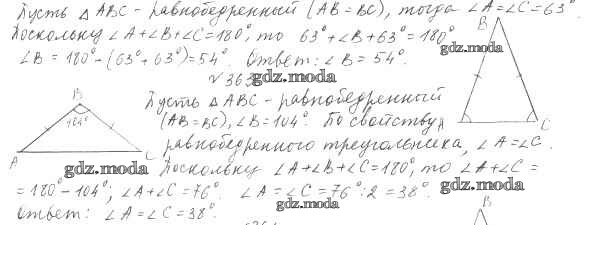 Пусть △ ABC - равнобедренный (AB = BC), тогда ∠A = ∠C = 63°.
Поскольку ∠A + ∠B + ∠C = 180°, то 63° + ∠B + 63° = 180°
∠B = 180° - (63° + 63°) = 54°. Ответ: ∠B = 54°.
B
gdz.moda
A
C
√ 363
gdz.moda
Пусть △ ABC - равнобедренный
(AB = BC), ∠B = 104°. По свойству
равнобедренного треугольника, ∠A = ∠C.
B
104°
A
C
gdz.moda
Поскольку ∠A + ∠B + ∠C = 180°, то ∠A + ∠C =
= 180° - 104°; ∠A + ∠C = 76°. ∠A = ∠C = 76° : 2 = 38°.
gdz.moda
gdz.moda
Ответ: ∠A = ∠C = 38°.
B